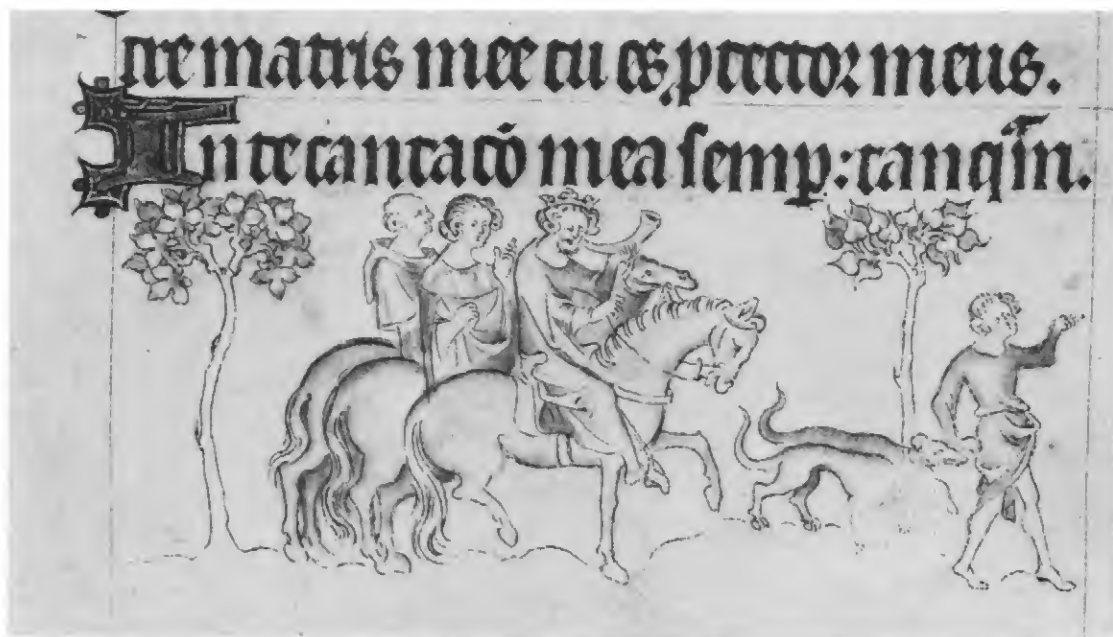 tre matris mee tu es ꝓtector meus.
In te cantatō mea semꝑ: tanq̃m.